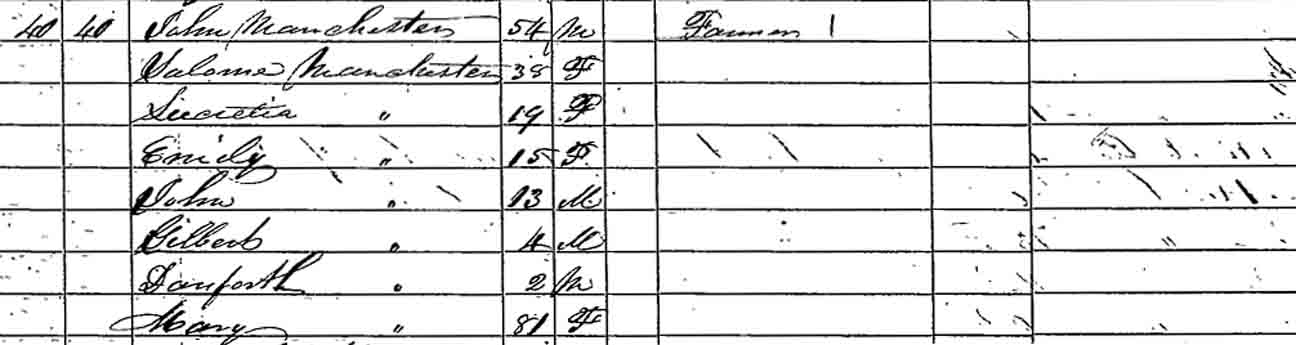 40 40 John Manchester 54 M Farmer 1
Salome Manchester 38 F
Lucretia " 19 F
Emily " 15 F
John " 13 M
Gilbert " 4 M
Danforth " 2 M
Mary " 81 F